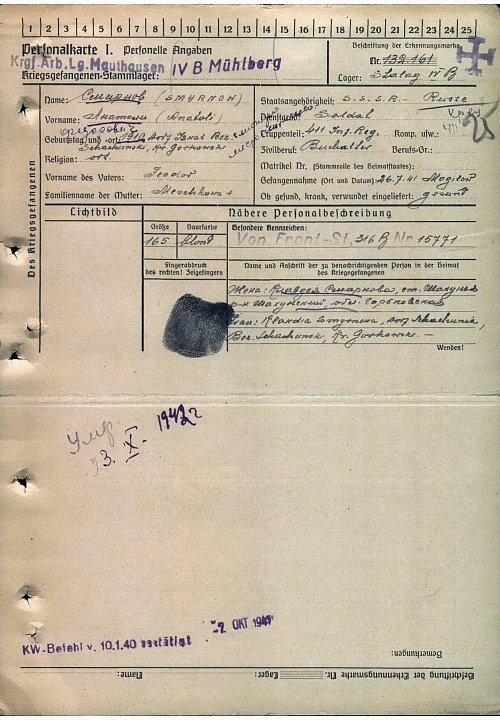 1 2 3 4 5 6 7 8 9 10 11 12 13 14 15 16 17 18 19 20 21 22 23 24 25
Personalkarte I. Personelle Angaben
Beschriftung der Erkennungsmarke
Krgf.Arb.Lg.Mauthausen IV B Mühlberg
Nr. 132161
Kriegsgefangenen-Stammlager:
Lager: Stalag IV B
Des Kriegsgefangenen
Name: Смирнов (SMYRNOW)
Staatsangehörigkeit: S.S.S.R. - Russe
Vorname: Анатоли (Anatoli)
Dienstgrad: Soldat
Geburtstag und -ort:
Truppenteil: 411 Inf. Reg. Komp. usw.:
Schachunski, Kr. Gorkowski
Zivilberuf: Buchalter Berufs-Gr.:
Religion: ort.
Matrikel Nr. (Stammrolle des Heimatstaates):
Vorname des Vaters: Feodor
Gefangennahme (Ort und Datum): 26.7.41 Mogilow
Familienname der Mutter: Meschkowa +
Ob gesund, krank, verwundet eingeliefert: gesund
Lichtbild
Nähere Personalbeschreibung
Größe Haarfarbe Besondere Kennzeichen:
165 blond Von Front-St. 316 B Nr 15771
Fingerabdruck
des rechten! Zeigefingers
Name und Anschrift der zu benachrichtigenden Person in der Heimat
des Kriegsgefangenen
Жена: Клавдея Смирнова, ст. Шахунья
р-н Шахунский, обл. Горьковская
Frau: Klandia Smyrnowa, Dorf Schachunia,
Bez. Schachunsk, Kr. Gorkowski. -
Wenden!
Умер
3. X. 1942 г
-2. OKT 1941
KW-Befehl v. 10.1.40 bestätigt
Bemerkungen:
Beschriftung der Erkennungsmarke Nr. Lager: Name: